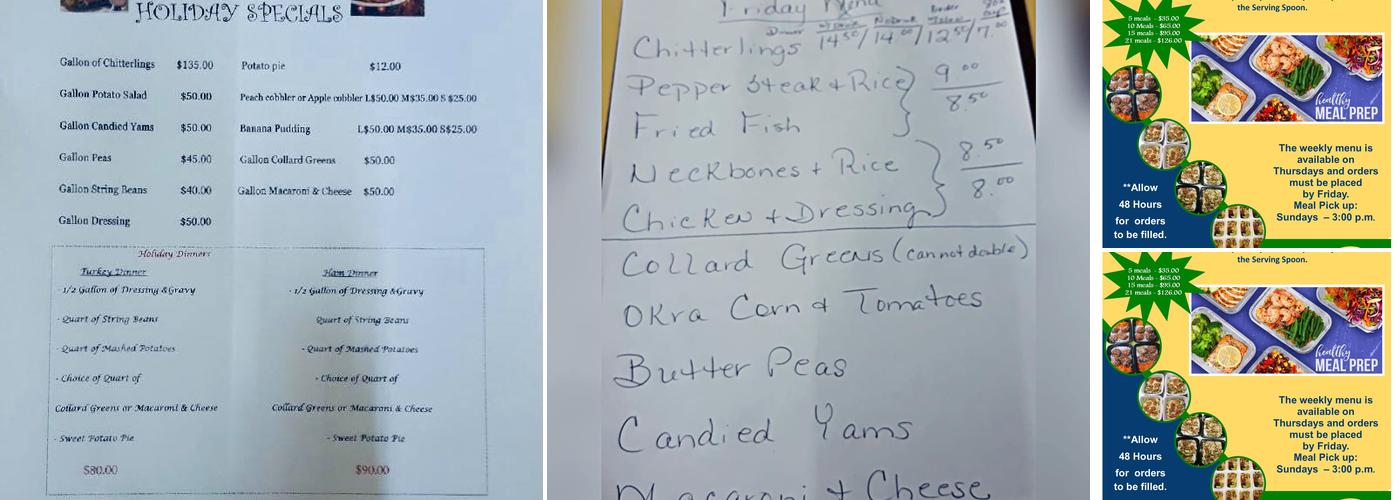 HOLIDAY SPECIALS
Gallon of Chitterlings $135.00 Potato pie $12.00
Gallon Potato Salad $50.00 Peach cobbler or Apple cobbler L$50.00 M$35.00 S $25.00
Gallon Candied Yams $50.00 Banana Pudding L$50.00 M$35.00 S$25.00
Gallon Peas $45.00 Gallon Collard Greens $50.00
Gallon String Beans $40.00 Gallon Macaroni & Cheese $50.00
Gallon Dressing $50.00
Holiday Dinners
Turkey Dinner Ham Dinner
- 1/2 Gallon of Dressing &Gravy - 1/2 Gallon of Dressing &Gravy
- Quart of String Beans Quart of String Beans
- Quart of Mashed Potatoes - Quart of Mashed Potatoes
- Choice of Quart of - Choice of Quart of
Collard Greens or Macaroni & Cheese Collard Greens or Macaroni & Cheese
- Sweet Potato Pie - Sweet Potato Pie
$80.00 $90.00
Friday Menu
Dinner
Chitterlings 14.50/ 14.00/ 12.50/ 7.00
Pepper Steak + Rice 9.00
Fried Fish 8.50
Neckbones + Rice 8.50
Chicken + Dressing 8.00
Collard Greens (cannot double)
Okra Corn & Tomatoes
Butter Peas
Candied Yams
Macaroni + Cheese
the Serving Spoon.
5 meals - $35.00
10 Meals - $65.00
15 meals - $95.00
21 meals - $126.00
healthy
MEAL PREP
The weekly menu is
available on
Thursdays and orders
must be placed
by Friday.
Meal Pick up:
Sundays – 3:00 p.m.
**Allow
48 Hours
for orders
to be filled.
the Serving Spoon.
5 meals - $35.00
10 Meals - $65.00
15 meals - $95.00
21 meals - $126.00
healthy
MEAL PREP
The weekly menu is
available on
Thursdays and orders
must be placed
by Friday.
Meal Pick up:
Sundays – 3:00 p.m.
**Allow
48 Hours
for orders
to be filled.